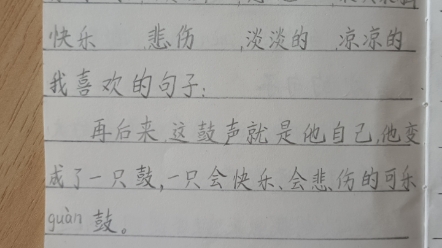 快乐 悲伤 淡淡的 凉凉的
我喜欢的句子:
再后来,这鼓声就是他自己,他变
成了一只鼓,一只会快乐、会悲伤的可乐
guàn 鼓。